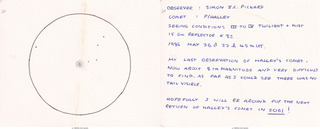 OBSERVER : SIMON J.C. PICKARD
COMET : P/HALLEY
SEEING CONDITIONS III TO IV TWILIGHT + MIST
15 CM REFLECTOR × 32
1986 MAY 3D @ 22 h 45 m UT.
MY LAST OBSERVATION OF HALLEY'S COMET.
NOW ABOUT 8TH MAGNITUDE AND VERY DIFFICULT
TO FIND. AS FAR AS I COULD SEE THERE WAS NO
TAIL VISIBLE.
HOPEFULLY I WILL BE AROUND FOR THE NEXT
RETURN OF HALLEY'S COMET IN 2061!